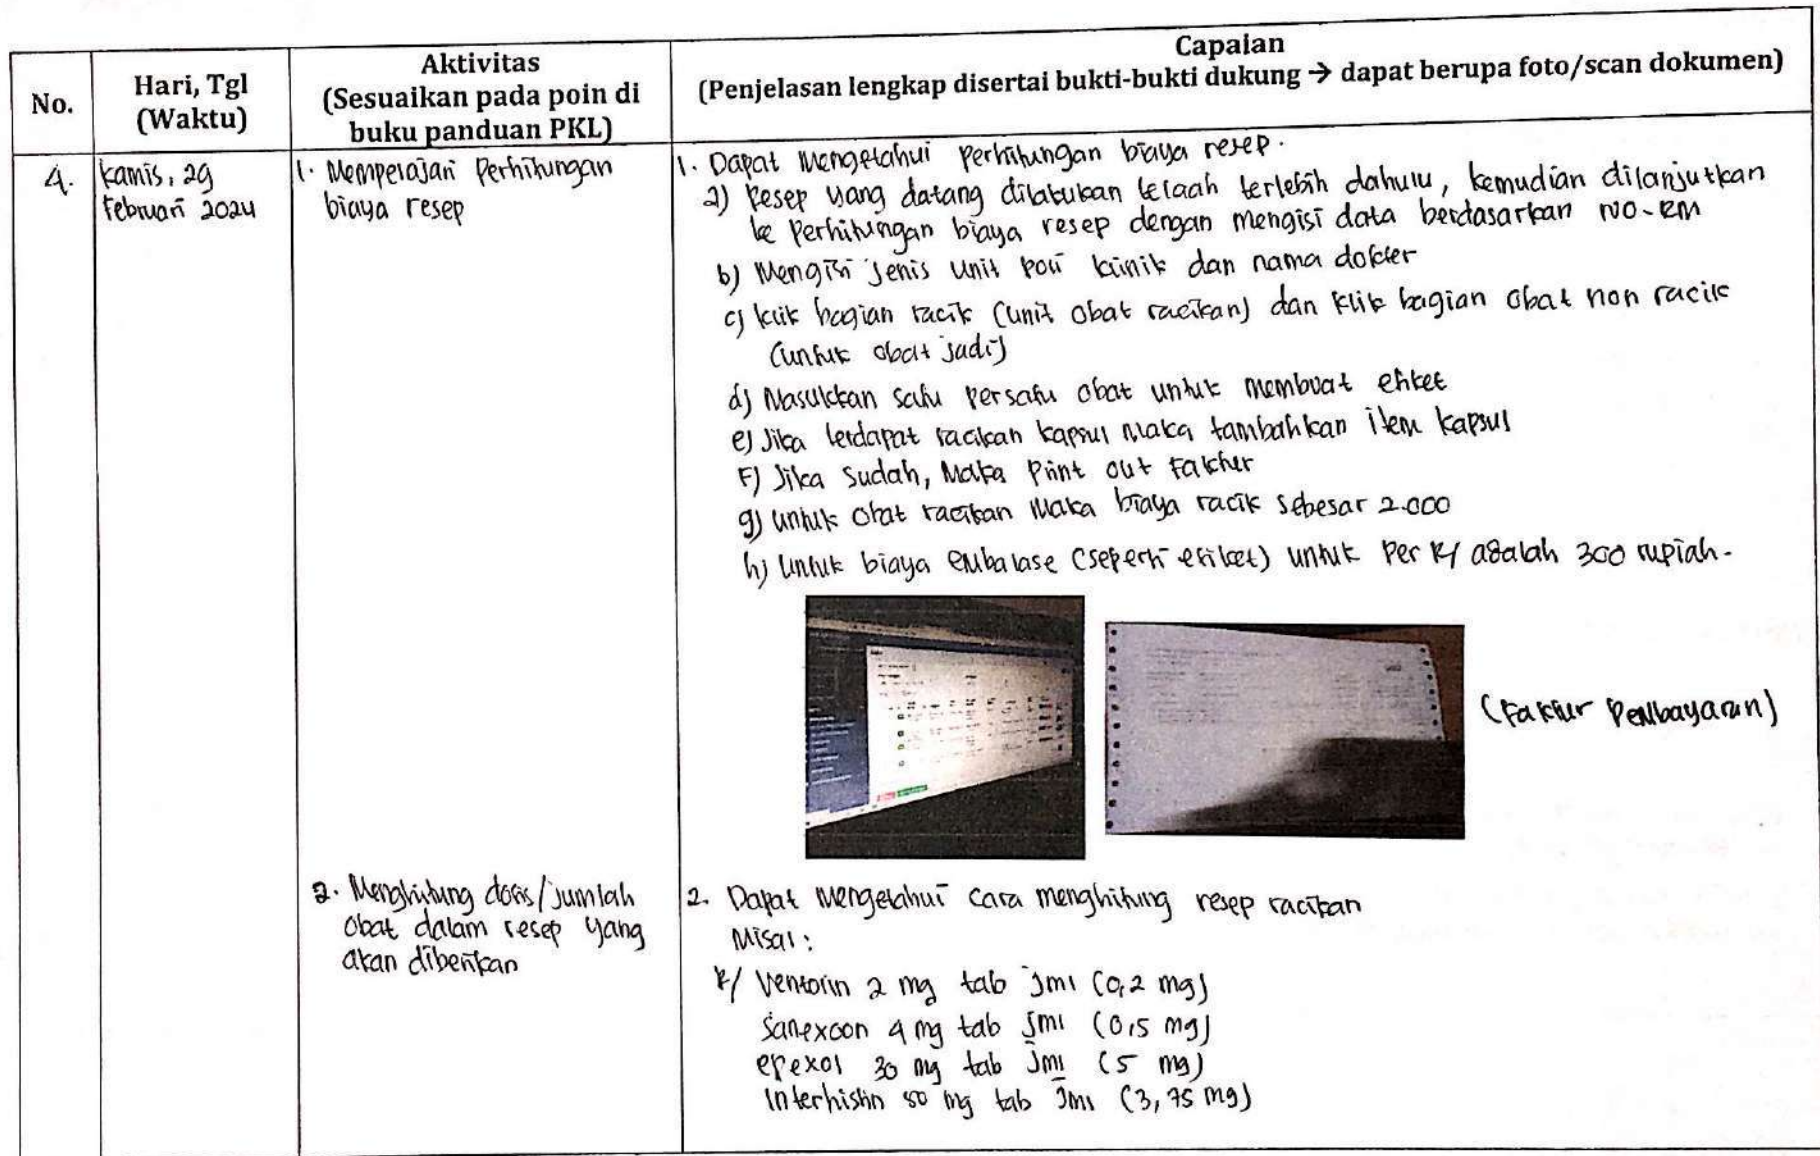 No.
Hari, Tgl
(Waktu)
Aktivitas
(Sesuaikan pada poin di
buku panduan PKL)
Capaian
(Penjelasan lengkap disertai bukti-bukti dukung → dapat berupa foto/scan dokumen)
4.
Kamis, 29
Februari 2024
1. Mempelajari Perhitungan
biaya resep
1. Dapat Mengetahui perhitungan biaya resep.
a) Resep yang datang dilakukan telaah terlebih dahulu, kemudian dilanjutkan
ke Perhitungan biaya resep dengan mengisi data berdasarkan NO-RM
b) Mengisi jenis unit poli klinik dan nama dokter
c) klik bagian racik (unit obat racikan) dan klik bagian obat non racik
(untuk obat jadi)
d) Masukkan satu persatu obat untuk membuat etiket
e) Jika terdapat racikan kapsul maka tambahkan item kapsul
F) Jika sudah, Maka Print out Faktur
g) untuk obat racikan Maka biaya racik sebesar 2.000
h) Untuk biaya embalase (seperti etiket) untuk Per R/ adalah 300 rupiah.
(Faktur Pembayaran)
2. Menghitung dosis/jumlah
obat dalam resep yang
akan diberikan
2. Dapat mengetahui cara menghitung resep racikan
Misal:
R/ Ventolin 2 mg tab Jml (0,2 mg)
Sanexoon 4 mg tab Jml (0,5 mg)
epexol 30 mg tab Jml (5 mg)
Interhistin 50 mg tab Jml (3,75 mg)